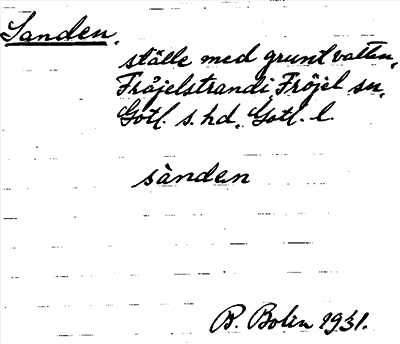 Sanden.
ställe med grunt vatten,
Fröjelstrandi, Fröjel sn,
Gotl. s. hd, Gotl. l.
sànden
B. Bolin 1931.